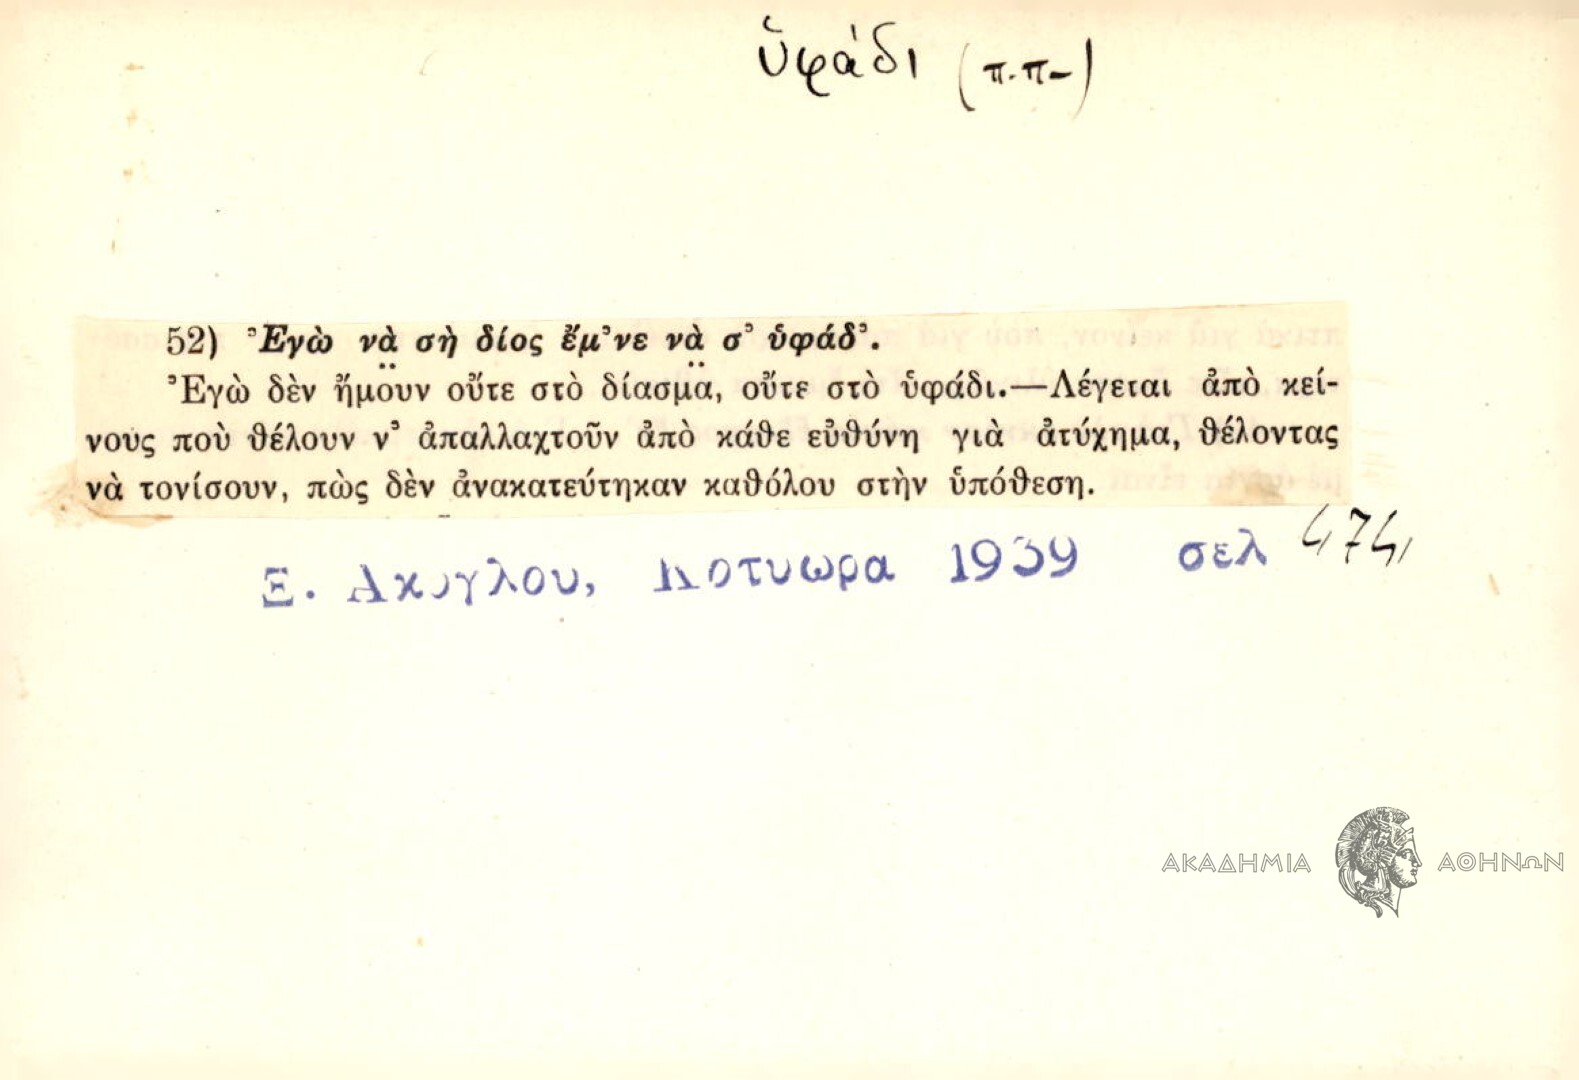 ὑφάδι (π.π-)
52) Ἐγὼ νὰ̤ σὴ δίος ἔμ'νε νὰ̤ σ' ὑφάδ'.
Ἐγὼ δὲν ἤμουν οὔτε στὸ δίασμα, οὔτε στὸ ὑφάδι.—Λέγεται ἀπὸ κεί-
νους ποὺ θέλουν ν' ἀπαλλαχτοῦν ἀπὸ κάθε εὐθύνη γιὰ ἀτύχημα, θέλοντας
νὰ τονίσουν, πὼς δὲν ἀνακατεύτηκαν καθόλου στὴν ὑπόθεση.
Ξ. Ακογλου, Κοτυωρα 1939 σελ 474,
ΑΚΑΔΗΜΙΑ ΑΘΗΝΩΝ